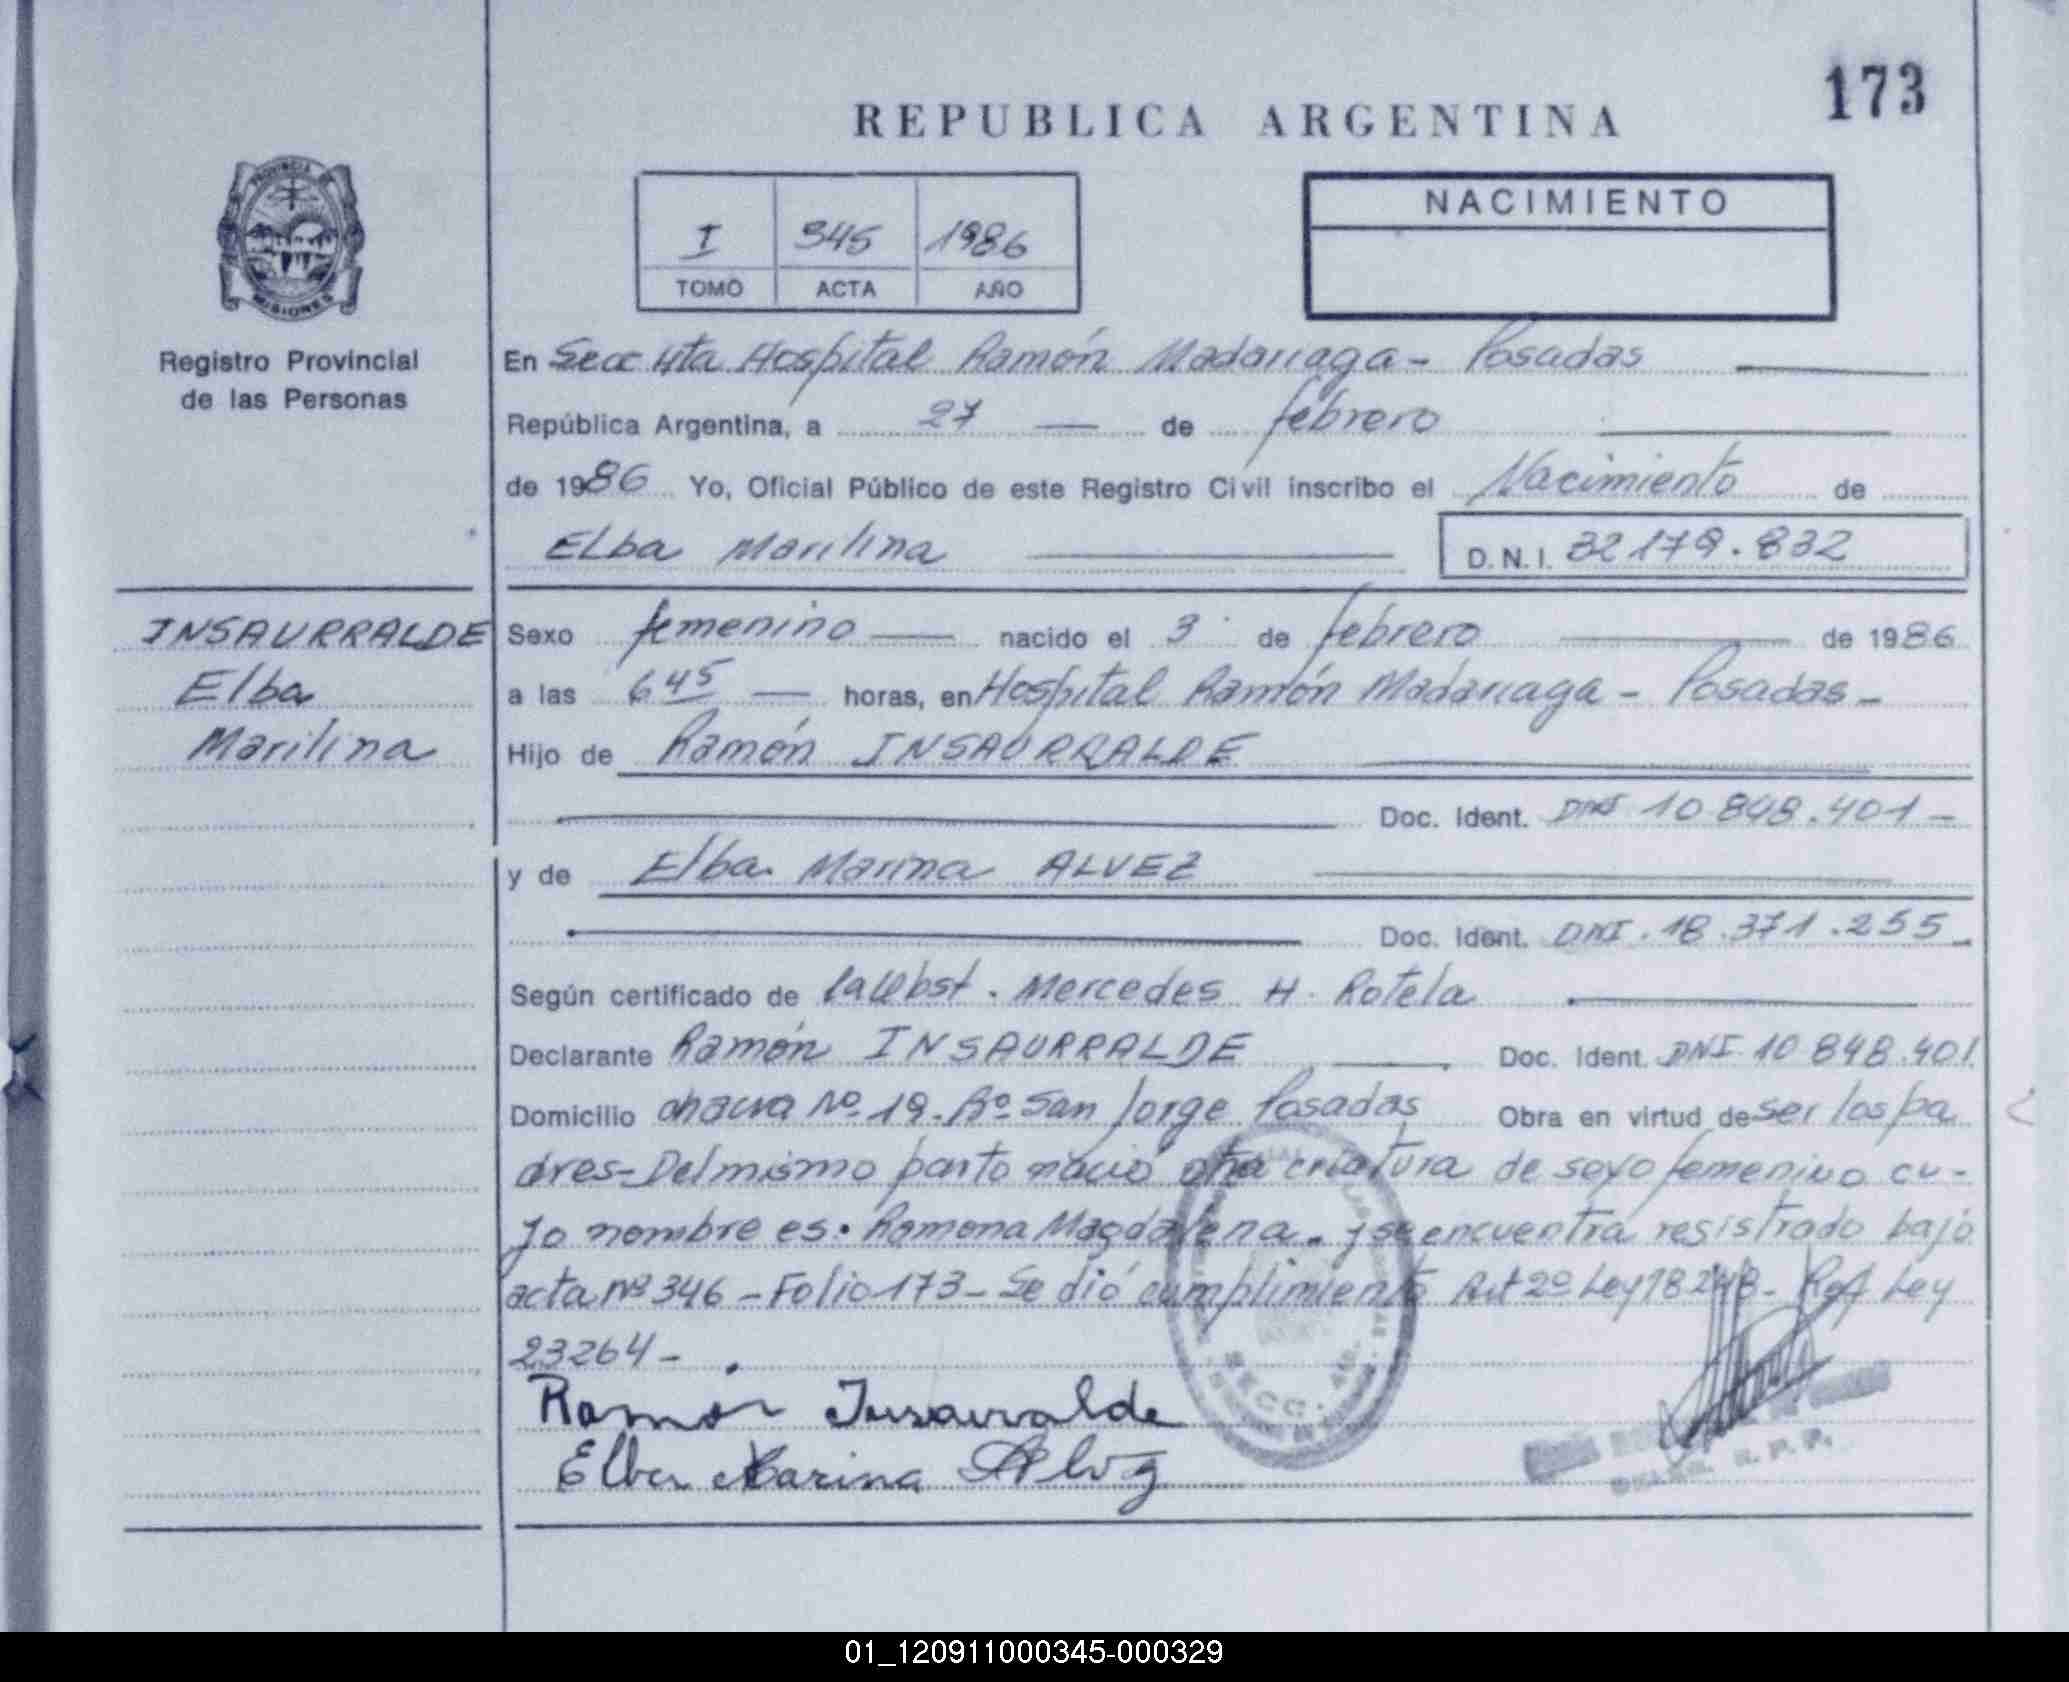 173
REPUBLICA ARGENTINA
PROVINCIA DE
MISIONES
Registro Provincial
de las Personas
I 345 1986
TOMO ACTA AÑO
NACIMIENTO
En Secc 4ta Hospital Ramón Madariaga - Posadas
República Argentina, a 27 de febrero
de 1986 Yo, Oficial Público de este Registro Civil inscribo el Nacimiento de
Elba Marilina D.N.I. 32179.832
INSAURRALDE
Elba
Marilina
Sexo femenino nacido el 3 de febrero de 1986
a las 6 45 horas, en Hospital Ramón Madariaga - Posadas -
Hijo de Ramón INSAURRALDE
Doc. Ident. DNI 10 848.401 -
y de Elba Marina ALVEZ
Doc. Ident. DNI. 18.371.255
Según certificado de la Obst. Mercedes H. Rotela
Declarante Ramón INSAURRALDE Doc. Ident. DNI 10 848.401
Domicilio chacra Nº 19. Bº San Jorge Posadas Obra en virtud de ser los pa
dres - Del mismo parto nació otra criatura de sexo femenino cu-
yo nombre es. Ramona Magdalena. y se encuentra resistrado bajo
acta nº 346 - Folio 173 - Se dió cumplimiento Art 2º Ley 18248 - Ref Ley
23264 - .
Ramón Insaurralde
Elba Marina Alvez
SECC.
R. P. P.
01_120911000345-000329